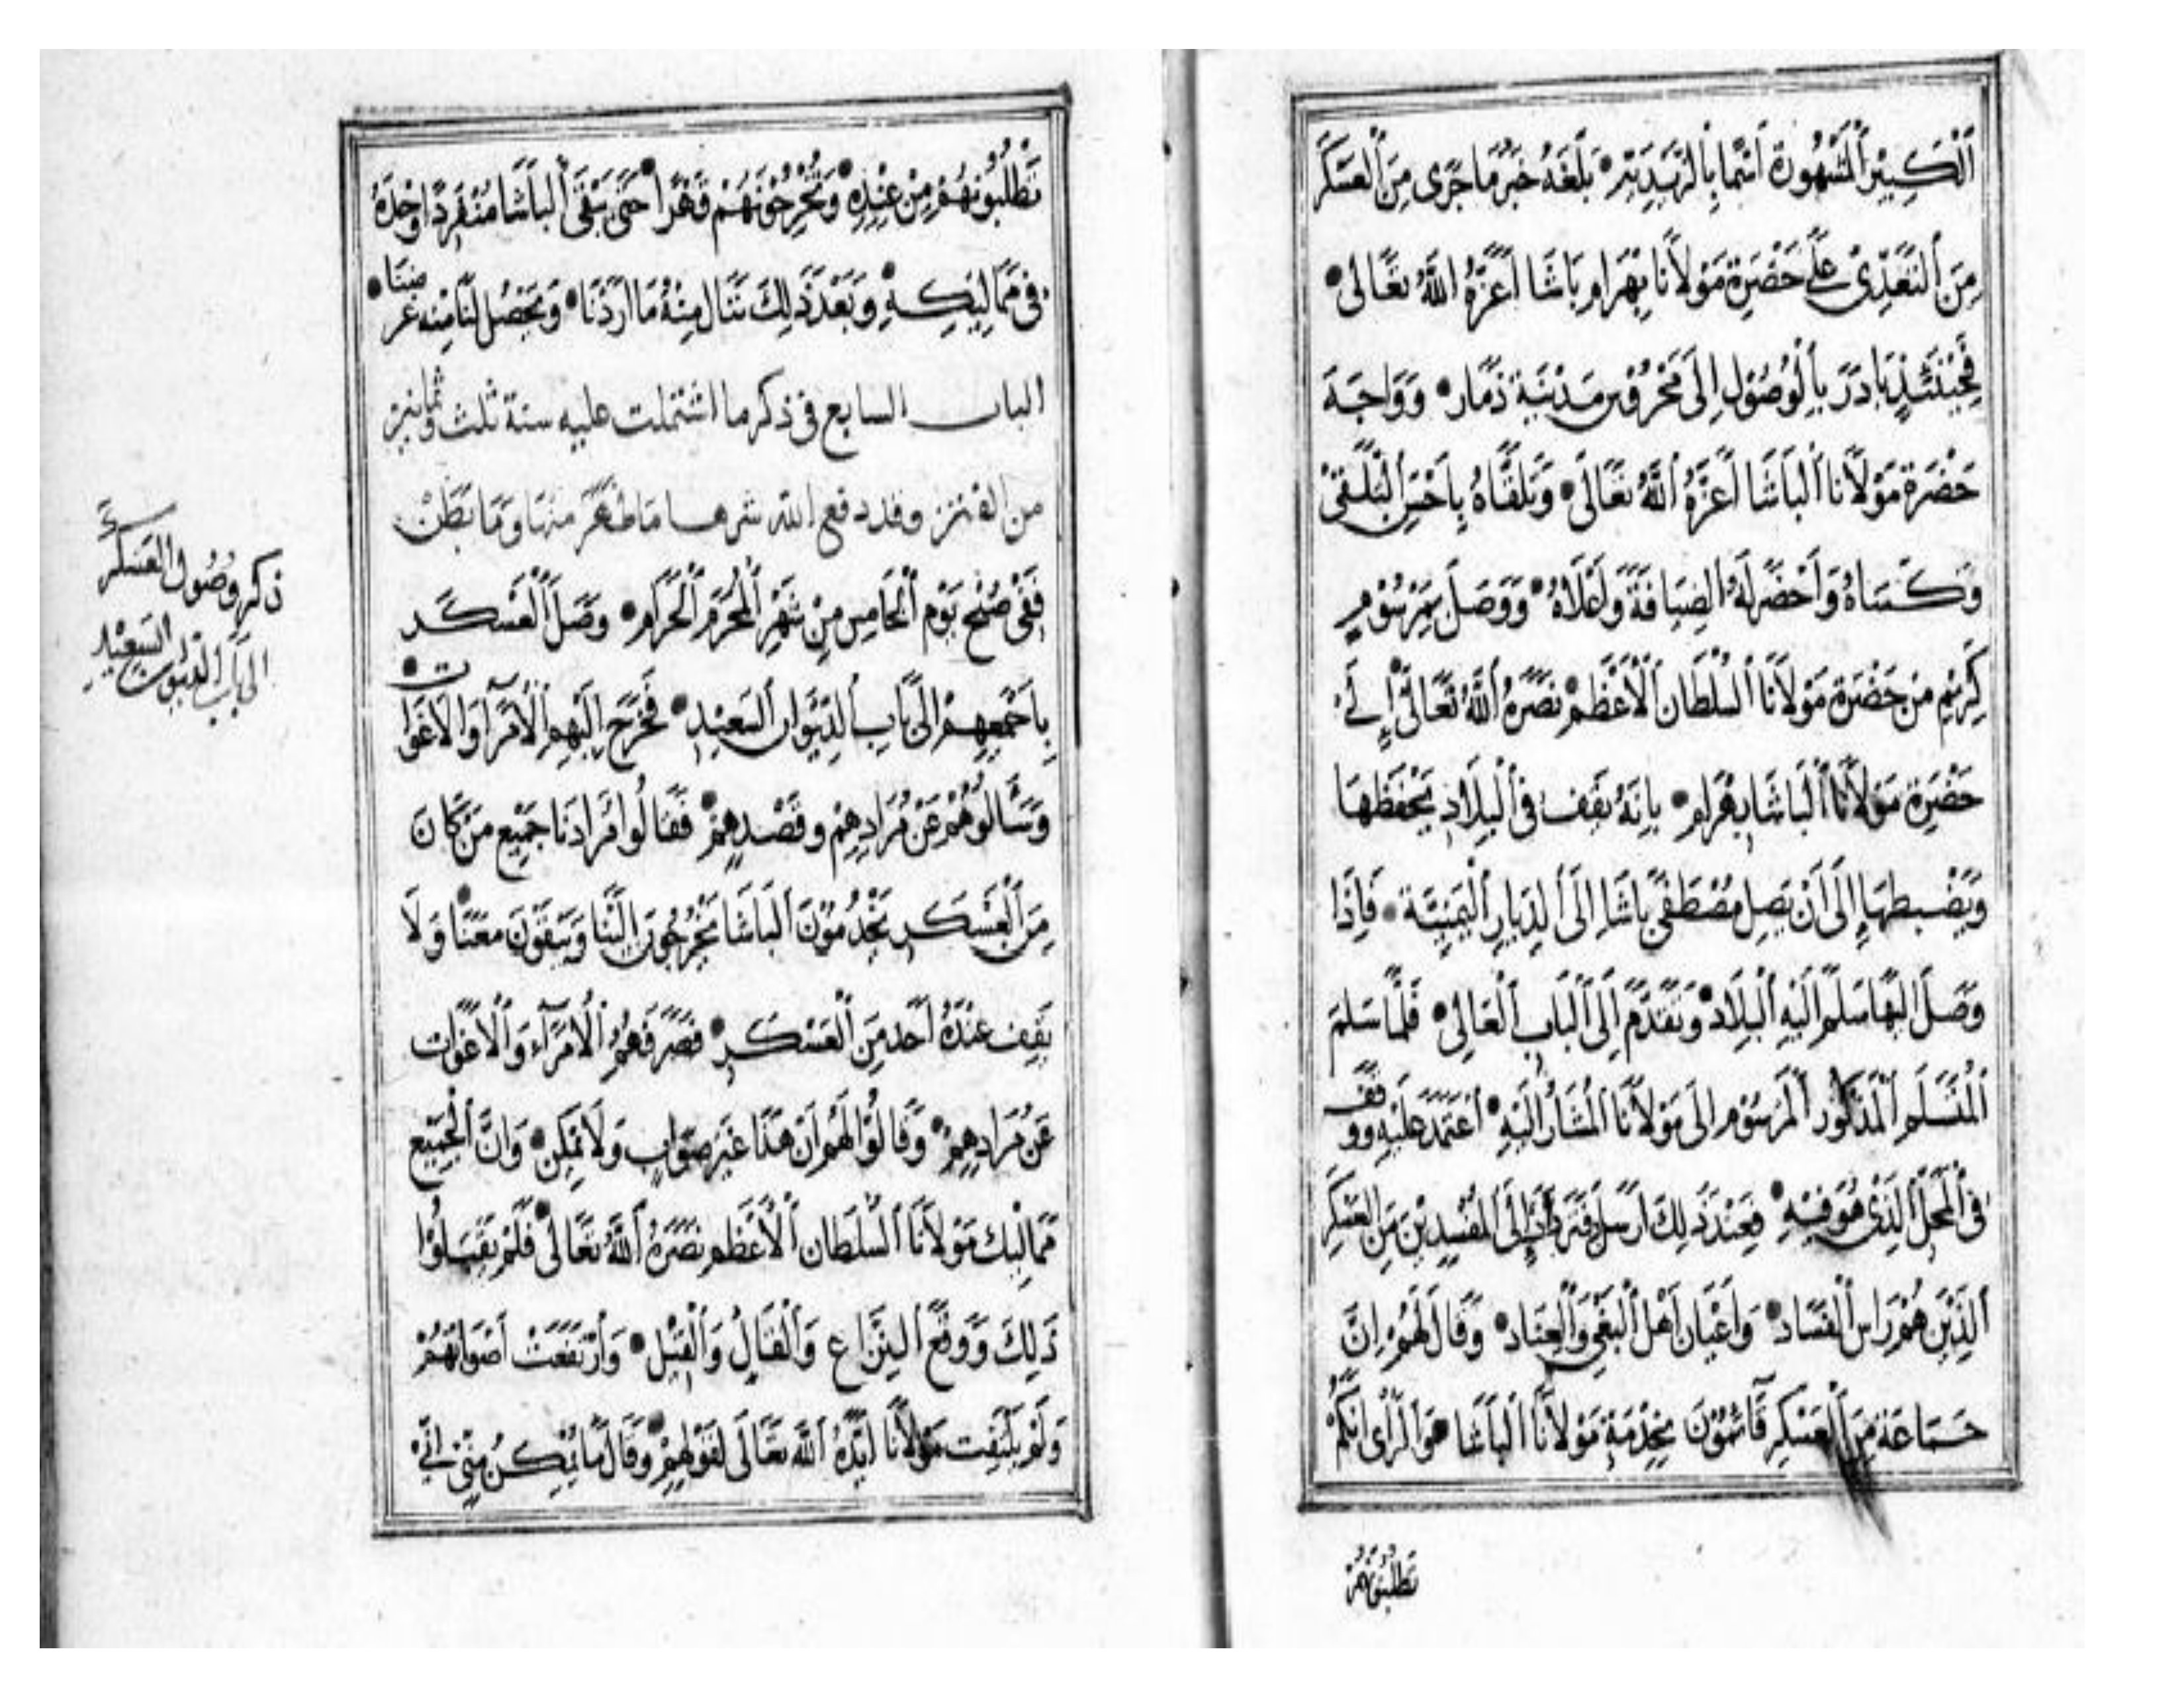 الكبير المشهورة اسما بالزيدية بلغه خبر ما جرى من العسكر
من التعدي على حضرة مولانا بهرام باشا أعزه الله تعالى
فحينئذ بادر بالوصول إلى محروس مدينة ذمار وواجه
حضرة مولانا الباشا أعزه الله تعالى وتلقاه بأحسن التلقي
وكساه وأحضر له الضيافة وأعلاه ووصل بمرسوم
كريم من حضرة مولانا السلطان الأعظم نصره الله تعالى إلى
حضرة مولانا الباشا بهرام بانه يقف في البلاد يحفظها
ويضبطها إلى أن يصل مصطفى باشا إلى الديار اليمنية فإذا
وصل اليها سلم اليه البلاد وتقدم إلى الباب العالي فلما سلم
المتسلم المذكور المرسوم الى مولانا المشار اليه اعتمد عليه ووقف
في المحل الذي هو فيه فعند ذلك ارسل إلى المفسدين من العسكر
الذين هم راس الفساد وأعيان أهل البغي والعناد وقال لهم ان
جماعة من العسكر قائمون بخدمة مولانا الباشا هو الرأى انكم
تطلبونهم
تطلبونهم من عنده وتخرجونهم قهرا حتى يبقى الباشا منفردا وحده
في مماليكه وبعد ذلك ننال منه ما أردنا ويحصل لنا منه غرضنا
الباب السابع في ذكر ما اشتملت عليه سنة ثلث وثمانين
من الفتن وقد دفع الله شرها ما ظهر منها وما بطن
ففي صبح يوم الخامس من شهر المحرم الحرام وصل العسكر
بأجمعهم الى باب الديوان السعيد فخرج اليهم الأمرآ والاغوات
وسألوهم عن مرادهم وقصدهم فقالوا مرادنا جميع من كان
من العسكر يخدمون الباشا يخرجون الينا ويبقون معنا ولا
يقف عنده أحد من العسكر فصرفهم الأمرآء والأغوات
عن مرادهم وقالوا لهم ان هذا غير صواب ولا يمكن وان الجميع
مماليك مولانا السلطان الأعظم نصره الله تعالى فلم يقبلوا
ذلك ووقع النزاع والقال والقيل وارتفعت أصواتهم
ولم يلتفت مولانا أيده الله تعالى لقولهم وقال ما يمكن مني اني
ذكر وصول العسكر
الى باب الديوان السعيد